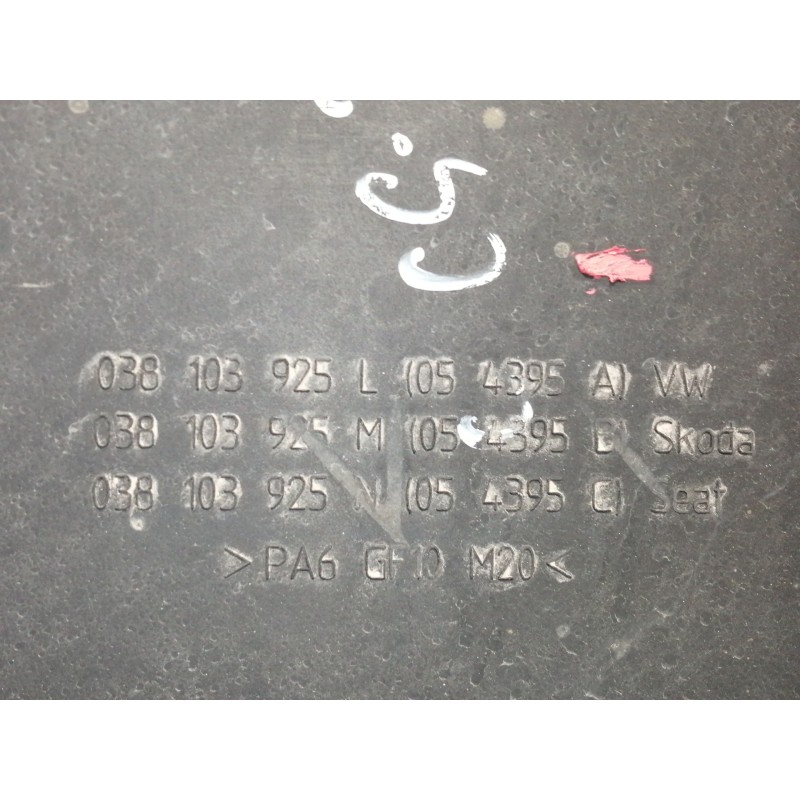 038 103 925 L (05 4395 A) VW
038 103 925 M (05 4395 B) Skoda
038 103 925 N (05 4395 C) Seat
>PA6 GF10 M20<